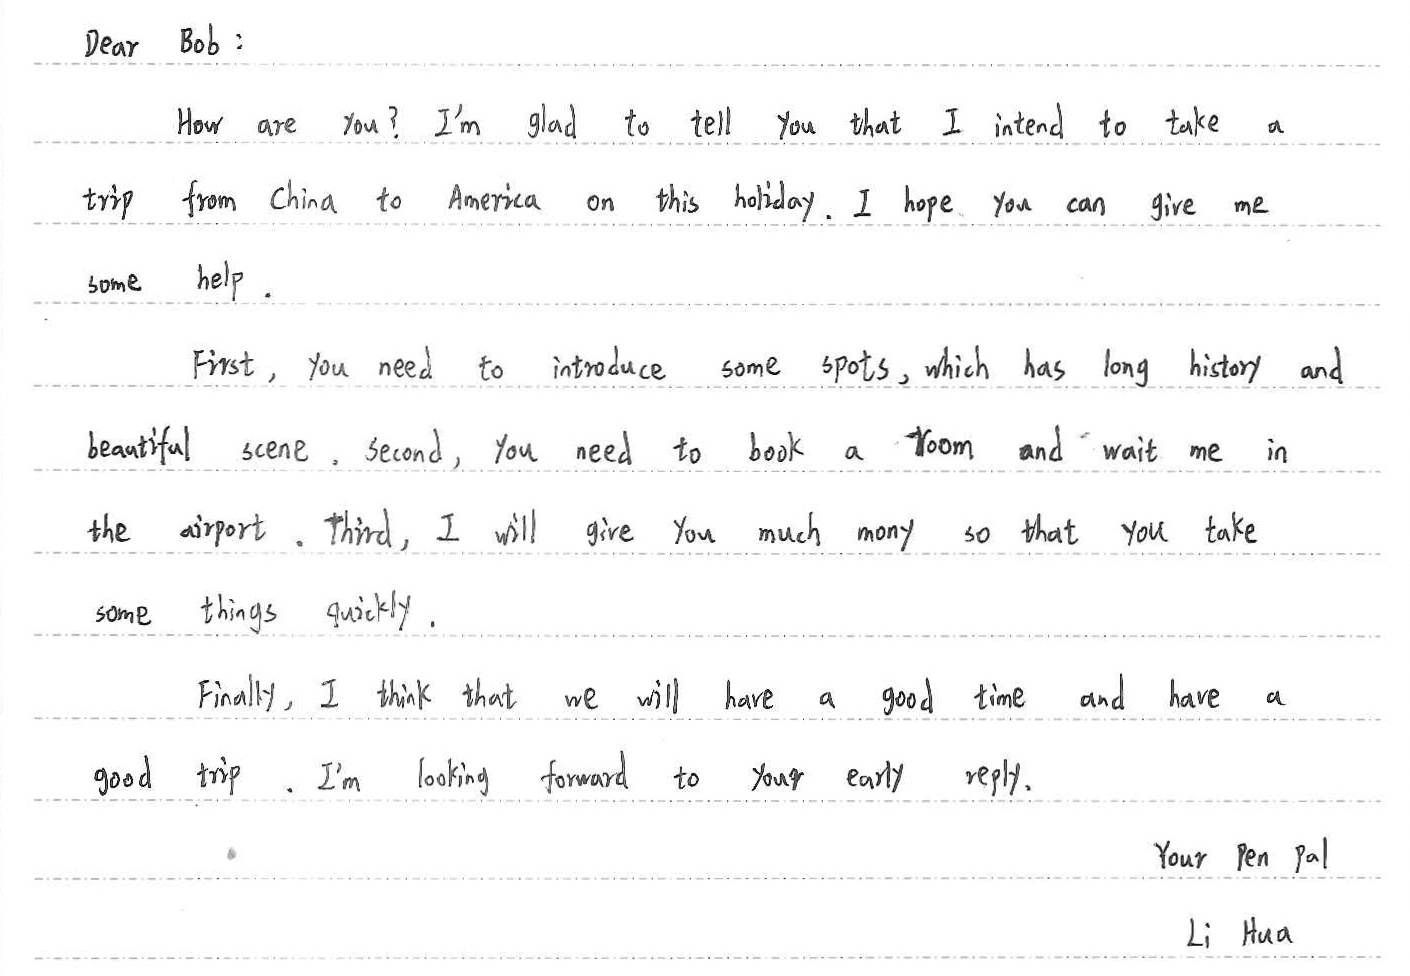 Dear Bob:
How are you? I'm glad to tell you that I intend to take a
trip from China to America on this holiday. I hope you can give me
some help.
First, you need to introduce some spots, which has long history and
beautiful scene. Second, you need to book a room and wait me in
the airport. Third, I will give you much mony so that you take
some things quickly.
Finally, I think that we will have a good time and have a
good trip. I'm looking forward to your early reply.
Your Pen Pal
Li Hua